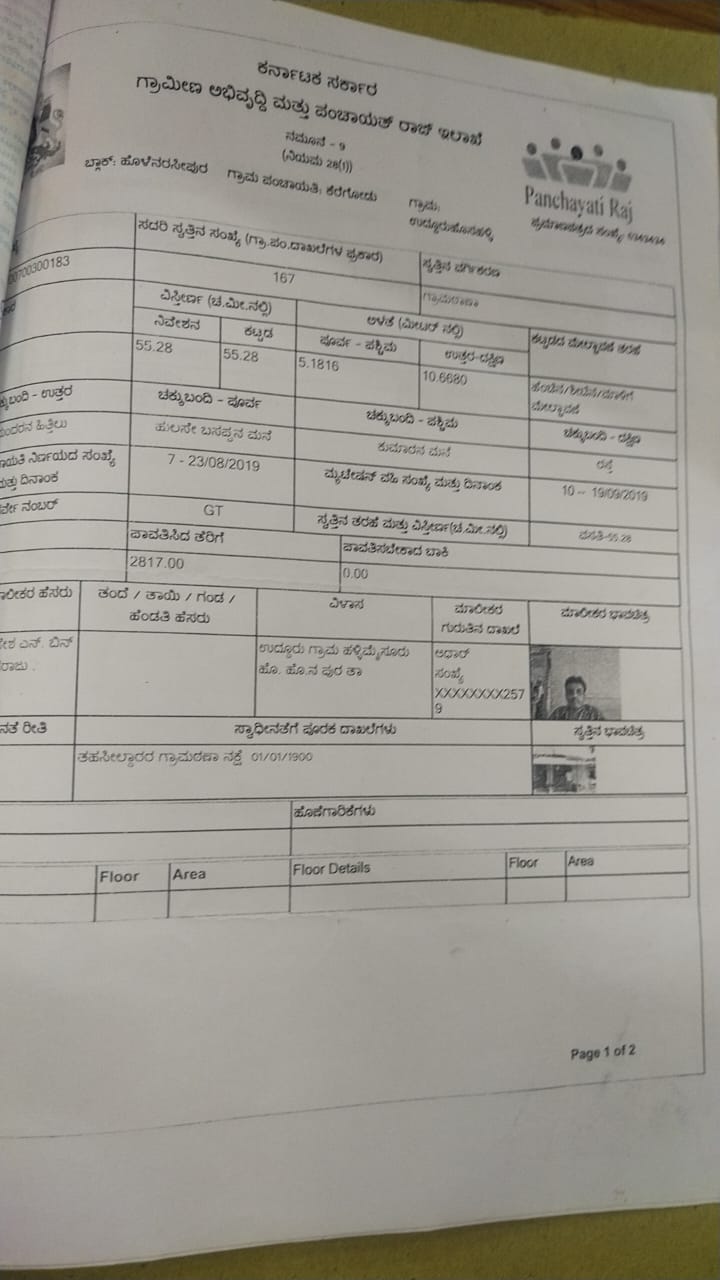 ಕರ್ನಾಟಕ ಸರ್ಕಾರ
ಗ್ರಾಮೀಣ ಅಭಿವೃದ್ಧಿ ಮತ್ತು ಪಂಚಾಯತ್ ರಾಜ್ ಇಲಾಖೆ
ನಮೂನೆ - 9
(ನಿಯಮ 28(1))
ಬ್ಲಾಕ್: ಹೊಳೆನರಸೀಪುರ ಗ್ರಾಮ ಪಂಚಾಯತಿ: ಕೆರಗೋಡು ಗ್ರಾಮ:
Panchayati Raj
ಸದರಿ ಸ್ವತ್ತಿನ ಸಂಖ್ಯೆ (ಗ್ರಾ.ಪಂ.ದಾಖಲೆಗಳ ಪ್ರಕಾರ) ಸ್ವತ್ತಿನ ವರ್ಗೀಕರಣ
00700300183 167 ಗ್ರಾಮಠಾಣಾ
ವಿಸ್ತೀರ್ಣ (ಚ.ಮೀ.ನಲ್ಲಿ) ಅಳತೆ (ಮೀಟರ್ ನಲ್ಲಿ)
ನಿವೇಶನ ಕಟ್ಟಡ ಪೂರ್ವ - ಪಶ್ಚಿಮ ಉತ್ತರ-ದಕ್ಷಿಣ ಕಟ್ಟಡದ ಮೇಲ್ಛಾವಣಿ ತರಹೆ
55.28 55.28 5.1816 10.6680
- ಉತ್ತರ ಚಕ್ಕುಬಂದಿ - ಪೂರ್ವ ಚಕ್ಕುಬಂದಿ - ಪಶ್ಚಿಮ ಚಕ್ಕುಬಂದಿ - ದಕ್ಷಿಣ
ಹಿತ್ತಿಲು ಹುಲಸೇ ಬಸಪ್ಪನ ಮನೆ ಕುಮಾರನ ಮನೆ ರಸ್ತೆ
ನಿರ್ಣಯದ ಸಂಖ್ಯೆ
ದಿನಾಂಕ 7 - 23/08/2019 ಮ್ಯುಟೇಷನ್ ವಹಿ ಸಂಖ್ಯೆ ಮತ್ತು ದಿನಾಂಕ 10 -- 19/09/2019
ನಂಬರ್ GT ಸ್ವತ್ತಿನ ತರಹೆ ಮತ್ತು ವಿಸ್ತೀರ್ಣ(ಚ.ಮೀ.ನಲ್ಲಿ) ವಸತಿ-55.28
ಪಾವತಿಸಿದ ತೆರಿಗೆ ಪಾವತಿಸಬೇಕಾದ ಬಾಕಿ
2817.00 0.00
ಹೆಸರು ತಂದೆ / ತಾಯಿ / ಗಂಡ /
ಹೆಂಡತಿ ಹೆಸರು ವಿಳಾಸ ಮಾಲೀಕರ
ಗುರುತಿನ ದಾಖಲೆ ಮಾಲೀಕರ ಭಾವಚಿತ್ರ
ಎನ್. ಬಿನ್ ಉದ್ದೂರು ಗ್ರಾಮ ಹಳ್ಳಿಮೈಸೂರು
ಹೊ. ಹೊ.ನ ಪುರ ತಾ
ಆಧಾರ್
ಸಂಖ್ಯೆ
XXXXXXXX257
9
ರೀತಿ ಸ್ವಾಧೀನತೆಗೆ ಪೂರಕ ದಾಖಲೆಗಳು ಸ್ವತ್ತಿನ ಭಾವಚಿತ್ರ
ತಹಸೀಲ್ದಾರರ ಗ್ರಾಮಠಾಣಾ ನಕ್ಷೆ 01/01/1900
ಹೊಣೆಗಾರಿಕೆಗಳು
Floor Area Floor Details Floor Area
Page 1 of 2